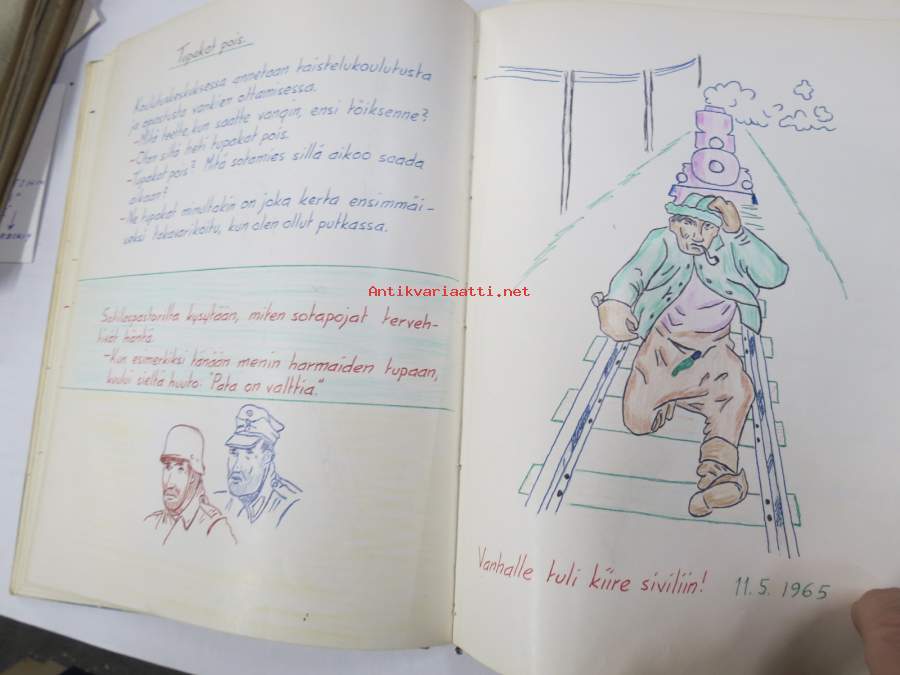 Tupakat pois.
Koulutuskeskuksessa annetaan taistelukoulutusta
ja opastusta vankien ottamisessa.
-Mitä teette, kun saatte vangin, ensi töiksenne?
-Otan siltä heti tupakat pois.
-Tupakat pois? Mitä sotamies sillä aikoo saada
aikaan?
-Ne tupakat minultakin on joka kerta ensimmäi-
seksi takavarikoitu, kun olen ollut putkassa.
Sotilaspastorilta kysytään, miten sotapojat terveh-
tivät häntä.
-Kun esimerkiksi tänään menin harmaiden tupaan,
kuului sieltä huuto: "Pata on valttia".
Antikvariaatti.net
Vanhalle tuli kiire siviliin! 11.5.1965